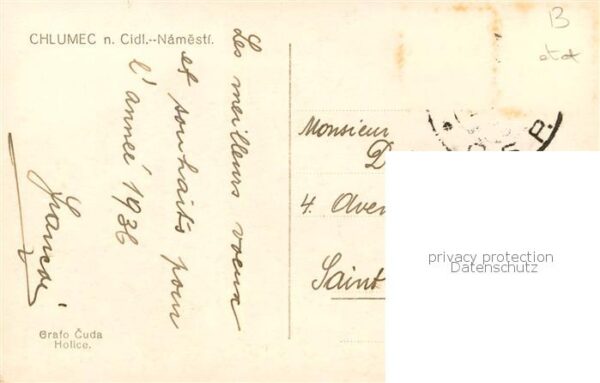 CHLUMEC n. Cidl.--Náměstí.
Les meilleurs voeux
et souhaits pour
l'année 1936
Grafo Čuda
Holice.
B
etat
Monsieur
D
4. Aven
Saint
P.
privacy protection
Datenschutz